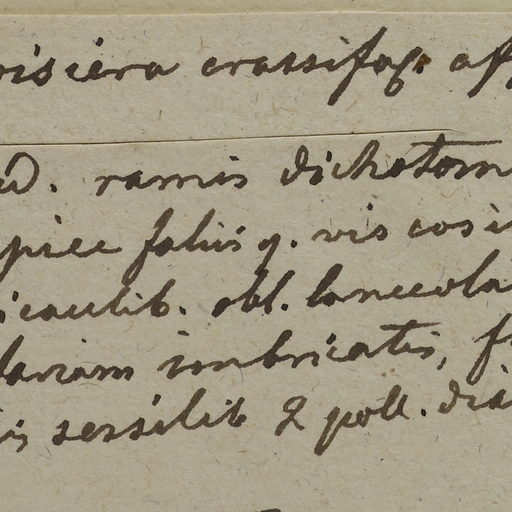 viscera crassifol. aff
ramis dichotom
apice foliisq. viscosi
icaulib. obl. lanceola
fariam imbricatis, f
is sessilib 2 poll. dia